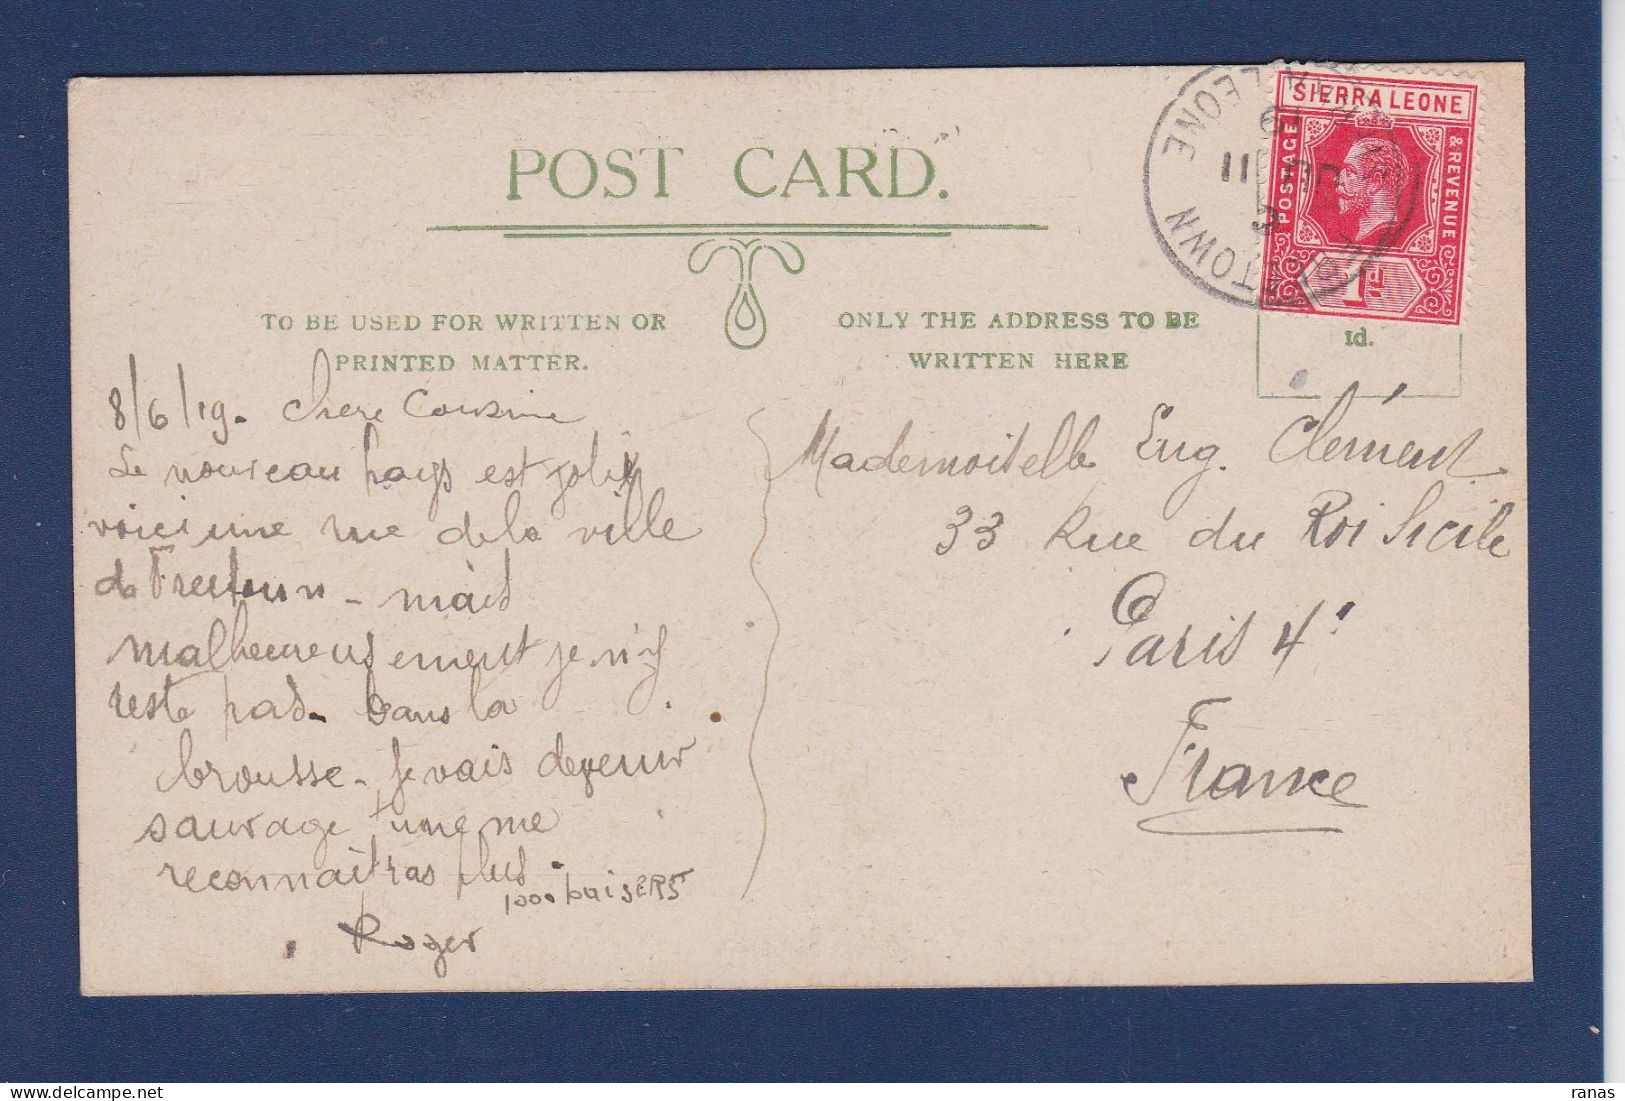 POST CARD.
TO BE USED FOR WRITTEN OR
PRINTED MATTER.
ONLY THE ADDRESS TO BE
WRITTEN HERE
SIERRA LEONE
POSTAGE
& REVENUE
1d
1d.
LEONE
TOWN
11
19
8/6/19. Chere Cousine
Le nouveau pays est joli
voici une rue de la ville
de Freetown - mais
malheureusement je n'y
reste pas. Dans la
brousse. Je vais devenir
sauvage, tu ne me
reconnaitras plus.
1000 baisers
Roger
Mademoiselle Eug. Clément
33 Rue du Roi Sicile
Paris 4e
France
ranas